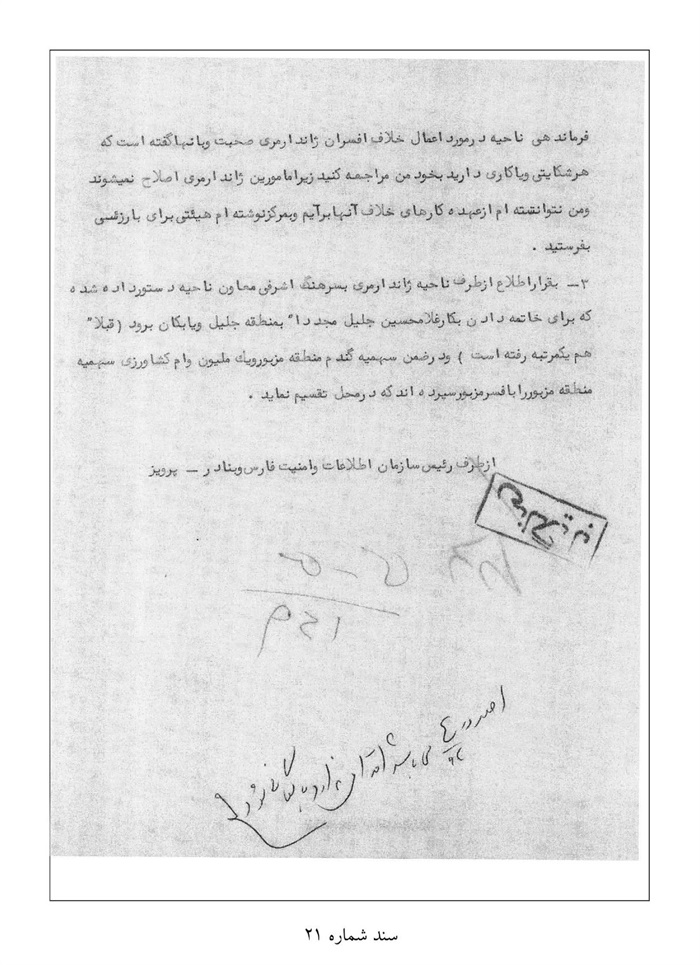 فرماندهی ناحیه درمورد اعمال خلاف افسران ژاندارمری صحبت وبانهاگفته است که
هرشکایتی ویاکاری دارید بخود من مراجعه کنید زیرامامورین ژاندارمری اصلاح نمیشوند
ومن نتوانسته ام ازعهده کارهای خلاف آنهابرآیم وبمرکزنوشته ام هیئتی برای بازرسی
بفرستید .
۳- بقراراطلاع ازطرف ناحیه ژاندارمری بسرهنگ اشرفی معاون ناحیه دستورداده شده
که برای خاتمه دادن بکارغلامحسین جلیل مجددا" بمنطقه جلیل وبابکان برود (قبلا"
هم یکمرتبه رفته است ) ودرضمن سهمیه گندم منطقه مزبورویك ملیون وام کشاورزی سهمیه
منطقه مزبوررابافسرمزبورسپرده اندکه درمحل تقسیم نماید .
ازطرف رئیس سازمان اطلاعات وامنیت فارس وبنادر - پرویز
سند شماره ۲۱